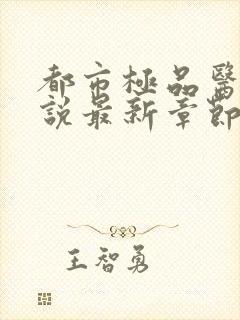 都市極品醫
說最新章節
王智勇